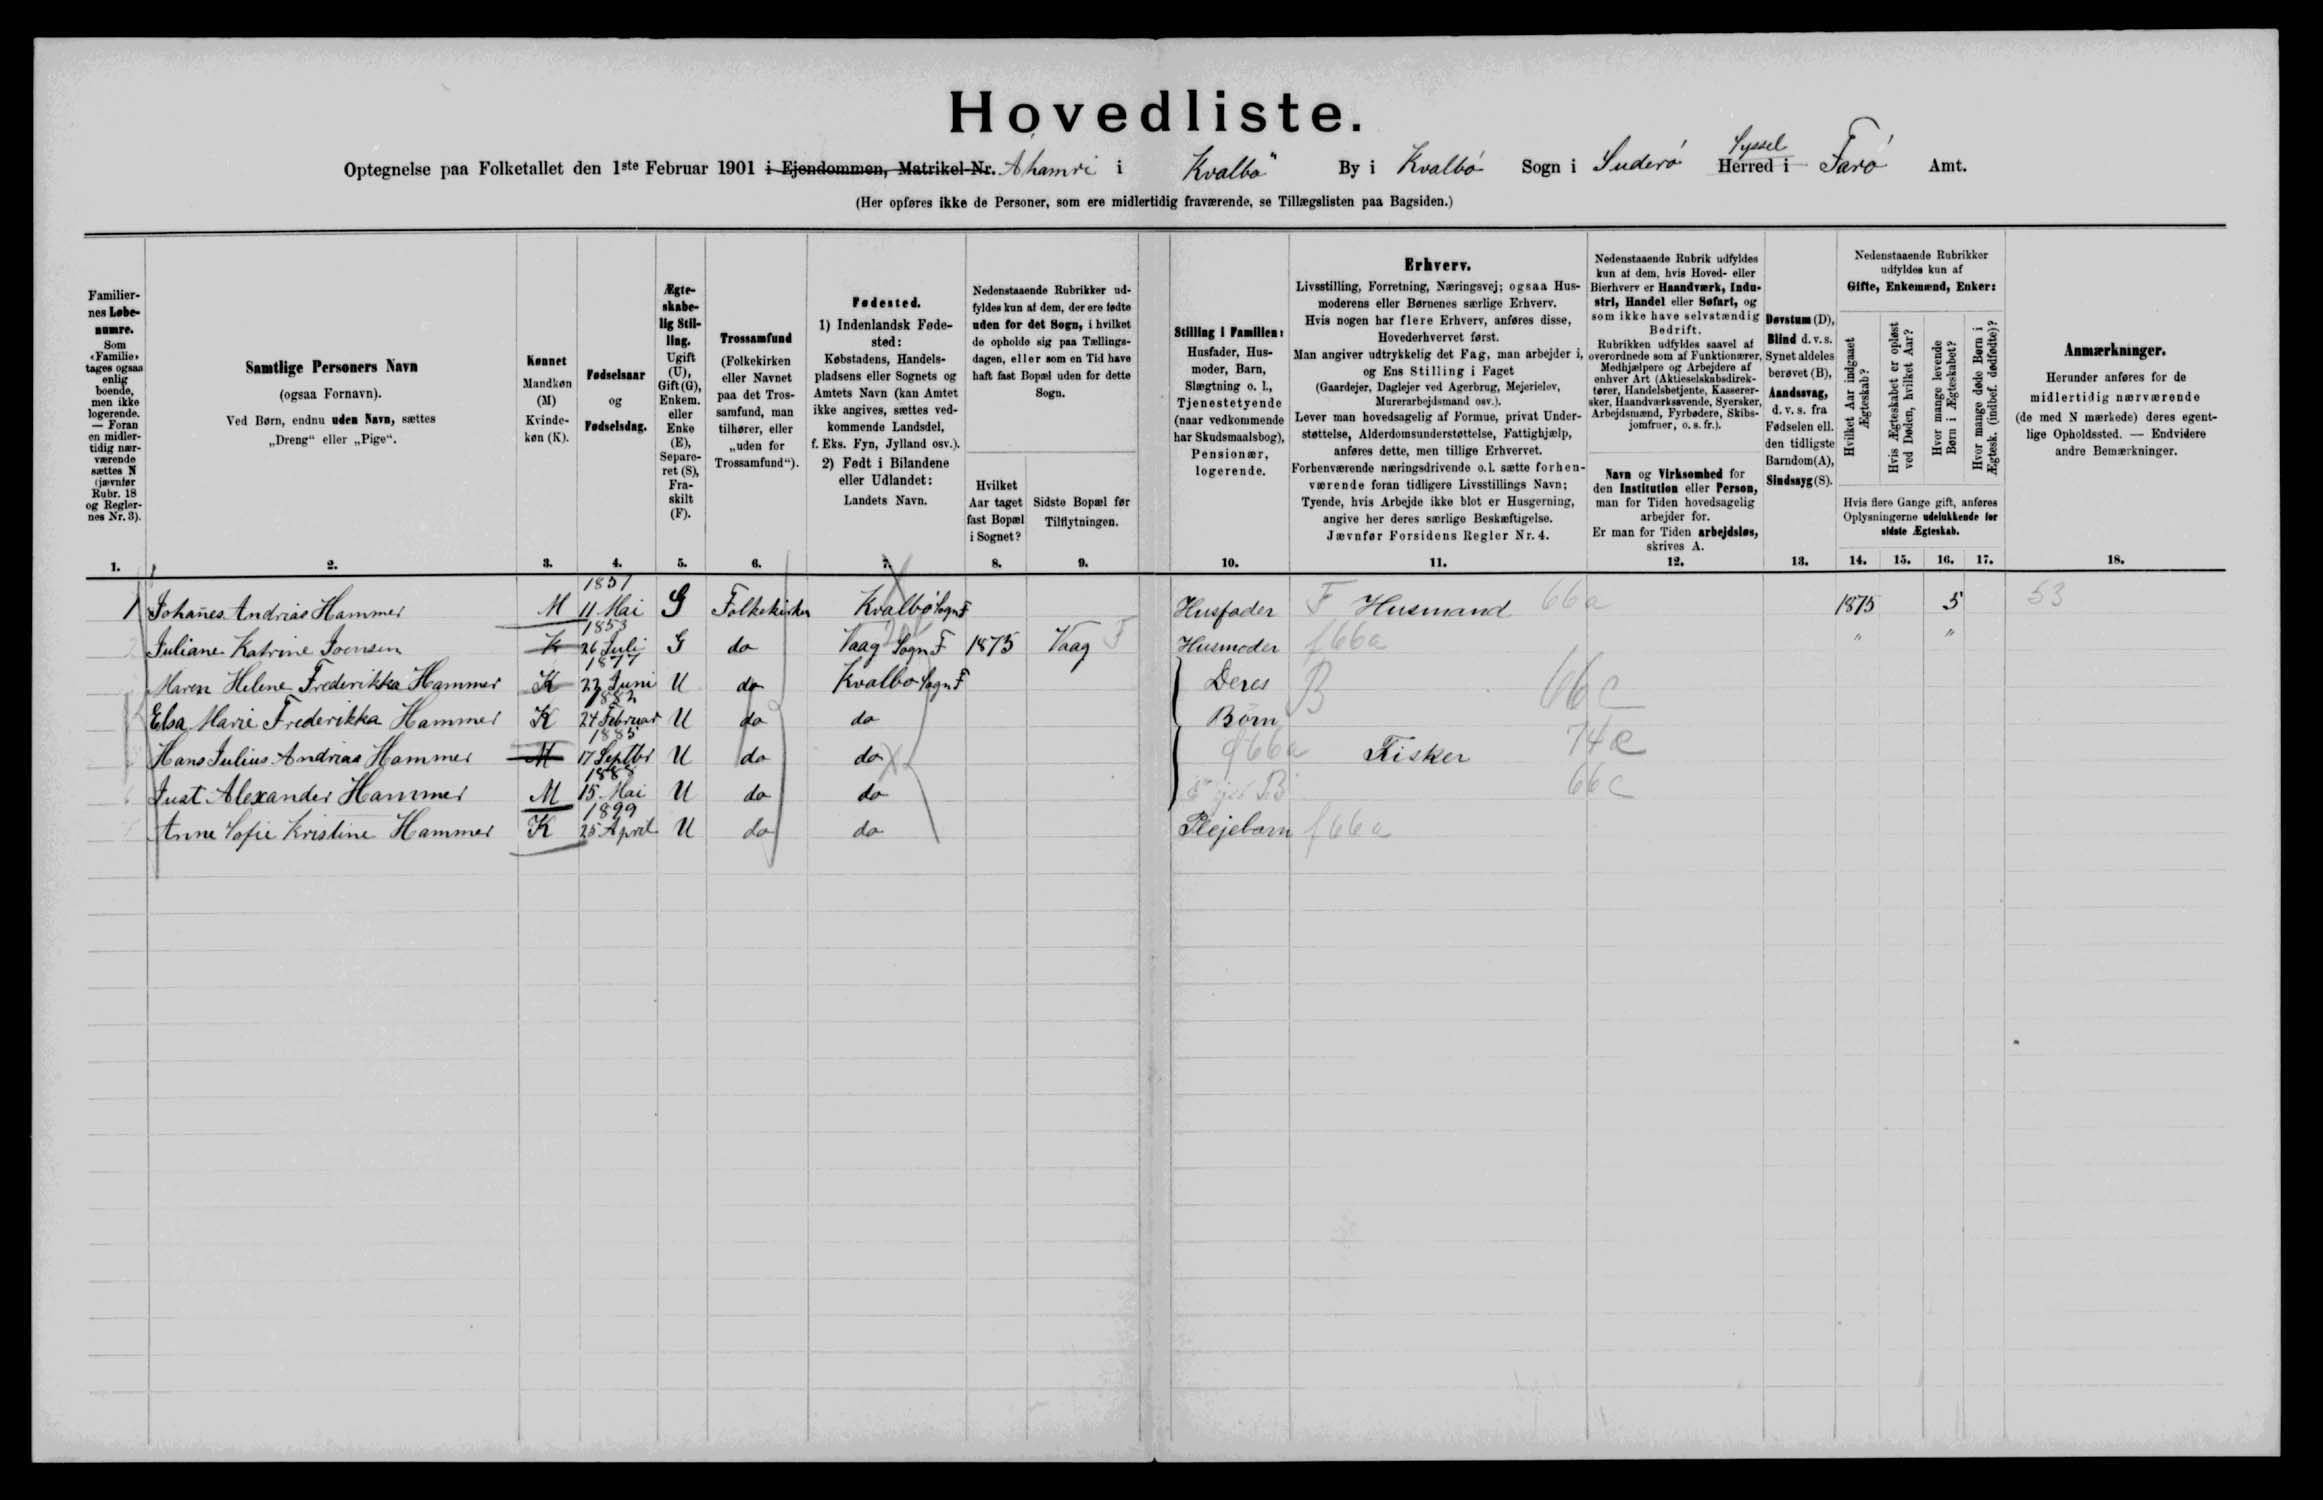 Hovedliste.
Optegnelse paa Folketallet den 1ste Februar 1901 i Ejendommen, Matrikel-Nr. Ahamri i Kvalbø By i Kvalbø Sogn i Suderø Syssel Herred i Farø Amt.
(Her opføres ikke de Personer, som ere midlertidig fraværende, se Tillægslisten paa Bagsiden.)
Familier-
nes Løbe-
numre.
Som
«Familie»
tages ogsaa
enlig
boende,
men ikke
logerende.
— Foran
en midler-
tidig nær-
værende
sættes N
(jævnfør
Rubr. 18
og Regler-
nes Nr. 3).
1.
Samtlige Personers Navn
(ogsaa Fornavn).
Ved Børn, endnu uden Navn, sættes
„Dreng“ eller „Pige“.
2.
Kønnet
Mandkøn
(M)
Kvinde-
køn (K).
3.
Fødselsaar
og
Fødselsdag.
4.
Ægte-
skabe-
lig Stil-
ling.
Ugift
(U),
Gift (G),
Enkem.
eller
Enke
(E),
Separe-
ret (S),
Fra-
skilt
(F).
5.
Trossamfund
(Folkekirken
eller Navnet
paa det Tros-
samfund, man
tilhører, eller
„uden for
Trossamfund“).
6.
Fødested.
1) Indenlandsk Føde-
sted:
Købstadens, Handels-
pladsens eller Sognets og
Amtets Navn (kan Amtet
ikke angives, sættes ved-
kommende Landsdel,
f. Eks. Fyn, Jylland osv.).
2) Født i Bilandene
eller Udlandet:
Landets Navn.
7.
Nedenstaaende Rubrikker ud-
fyldes kun af dem, der ere fødte
uden for det Sogn, i hvilket
de opholde sig paa Tællings-
dagen, eller som en Tid have
haft fast Bopæl uden for dette
Sogn.
Hvilket
Aar taget
fast Bopæl
i Sognet?
8.
Sidste Bopæl før
Tilflytningen.
9.
Stilling i Familien:
Husfader, Hus-
moder, Barn,
Slægtning o. l.,
Tjenestetyende
(naar vedkommende
har Skudsmaalsbog),
Pensionær,
logerende.
10.
Erhverv.
Livsstilling, Forretning, Næringsvej; ogsaa Hus-
moderens eller Børnenes særlige Erhverv.
Hvis nogen har flere Erhverv, anføres disse,
Hovederhvervet først.
Man angiver udtrykkelig det Fag, man arbejder i,
og Ens Stilling i Faget
(Gaardejer, Daglejer ved Agerbrug, Mejerielev,
Murerarbejdsmand osv.).
Lever man hovedsagelig af Formue, privat Under-
støttelse, Alderdomsunderstøttelse, Fattighjælp,
anføres dette, men tillige Erhvervet.
Forhenværende næringsdrivende o.l. sætte forhen-
værende foran tidligere Livsstillings Navn;
Tyende, hvis Arbejde ikke blot er Husgerning,
angive her deres særlige Beskæftigelse.
Jævnfør Forsidens Regler Nr. 4.
11.
Nedenstaaende Rubrik udfyldes
kun af dem, hvis Hoved- eller
Bierhverv er Haandværk, Indu-
stri, Handel eller Søfart, og
som ikke have selvstændig
Bedrift.
Rubrikken udfyldes saavel af
overordnede som af Funktionærer,
Medhjælpere og Arbejdere af
enhver Art (Aktieselskabsdirek-
tører, Handelsbetjente, Kasserer-
sker, Haandværkssvende, Syersker,
Arbejdsmænd, Fyrbødere, Skibs-
jomfruer, o. s. fr.).
Navn og Virksomhed for
den Institution eller Person,
man for Tiden hovedsagelig
arbejder for.
Er man for Tiden arbejdsløs,
skrives A.
12.
Døvstum (D),
Blind d. v. s.
Synet aldeles
berøvet (B),
Aandssvag,
d. v. s. fra
Fødselen ell.
den tidligste
Barndom(A),
Sindssyg (S).
13.
Nedenstaaende Rubrikker
udfyldes kun af
Gifte, Enkemænd, Enker:
Hvilket Aar indgaaet
Ægteskab?
Hvis Ægteskabet er opløst
ved Døden, hvilket Aar?
Hvor mange levende
Børn i Ægteskabet?
Hvor mange døde Børn i
Ægtesk. (indbef. dødfødte)?
Hvis flere Gange gift, anføres
Oplysningerne udelukkende for
sidste Ægteskab.
14. 15. 16. 17.
Anmærkninger.
Herunder anføres for de
midlertidig nærværende
(de med N mærkede) deres egent-
lige Opholdssted. — Endvidere
andre Bemærkninger.
18.
1 Johan̄es Andrias Hammer M 1851 11 Mai G Folkekirken Kvalbø Sogn F Husfader F Husmand 66a 1875 5 53
2 Juliane Katrine Joensen K 1853 26 Juli G do Vaag Sogn F 1875 Vaag F Husmoder f66a " "
Maren Helene Frederikka Hammer K 1877 22 Juni U do Kvalbø Sogn F Deres B 66c
Elsa Marie Frederikka Hammer K 1882 24 Februar U do do Børn
Hans Julius Andrias Hammer M 1885 17 Septbr U do do f66a Fisker 74e
6 Just Alexander Hammer M 1888 15 Mai U do do 66c
Anne Sofie Kristine Hammer K 1899 25 April U do do Plejebarn f66a